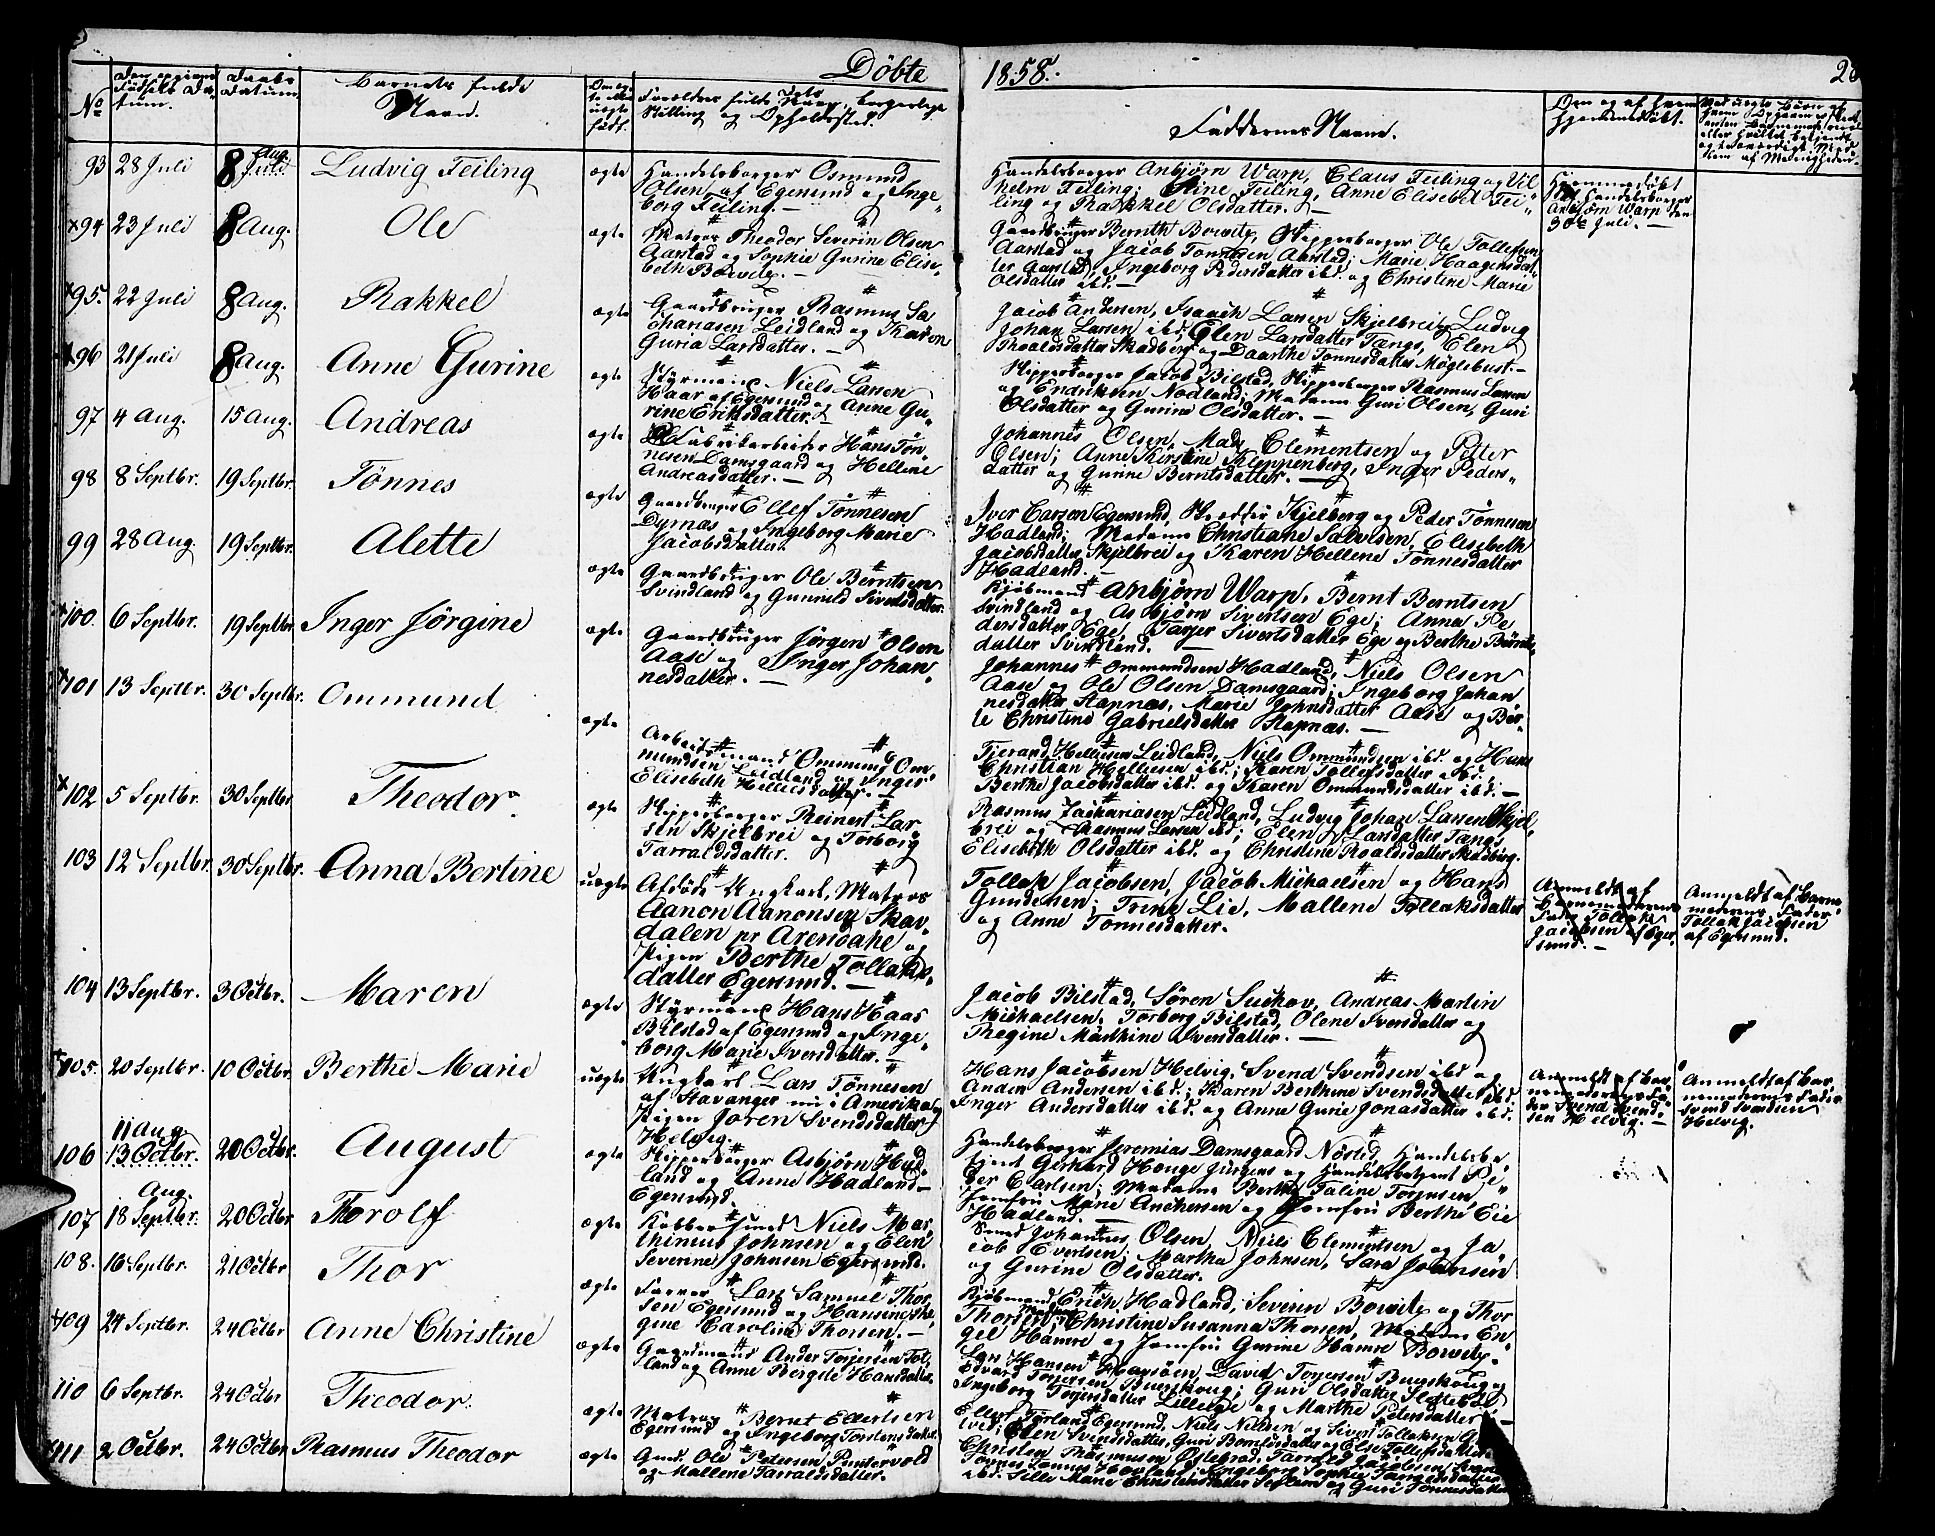 Döbte 1858.
No
Datum.
Daabs Datum.
Barnets fulde Navn.
Forældres fulde Navn, borgerlige Stilling og Opholdssted.
Faddernes Navne.
93 28 Juli 8 Aug. Ludvig Feiling ægte
Handelsborger Osmund
Olsen af Egersund og Inge-
borg Feiling. —
Handelsborger Anbjørn Warp, Claus Feiling og Vil-
helm Feiling; Stine Feiling, Anne Elisabet Fei-
ling og Rakkel Olsdatter. —
Hjemmedøbt
af Handelsborger
Anbjørn Warp den
30te Juli. —
94 23 Juli 8 Aug. Ole ægte
Matros Theodor Severin Olsen
Aarstad og Sophie Gurine Elise-
beth Bowitz. —
Gaardbruger Bernth Bowitz, Skipperborger Ole Tollefsen
Aarstad og Jacob Tonnesen Aarstad; Marie Haagensdat-
ter Aarstad, Ingeborg Pedersdatter ibd. og Christine Marie
Olsdatter ibd. —
95. 22 Juli 8 Aug. Rakkel ægte
Gaardbruger Rasmus Za-
chariasen Leidland og Karen
Guria Larsdatter. —
Jacob Andersen, Isaach Larsen Skjelbrei, Ludvig
Johan Larsen ibd; Elen Larsdatter Tængs, Elen
Roaldsdatter Skadberg og Daarthe Tonnesdatter Møglebust. —
96 21 Juli 8 Aug. Anne Gurine ægte
Styrmand Niels Larsen
Haar af Egersund og Anne Gu-
rine Eriksdatter. —
Skipperborger Jacob Bilstad, Skipperborger Rasmus Larsen
og Endriksen Nodland; Madame Guri Olsen, Guri
Olsdatter og Gurine Olsdatter. —
97 4 Aug. 15 Aug. Andreas ægte
Fabrikarbeider Hans Tön-
nesen Damsgaard og Hellene
Andreasdatter. —
Johannes Olsen, Mads Clementsen og Petter
Olsen; Anne Kirstine Kleppenberg, Inger Peders-
datter og Gurine Berntsdatter. —
98 8 Septbr. 19 Septbr. Tönnes ægte
Gaardbruger Ellef Tønnesen
Dyrnæs og Ingeborg Marie
Jacobsdatter.
Iver Carson Egersund, Kjelberg og Peder Tønnesen
Hadland; Madame Christiane Salvesen, Elisebeth
Jacobsdatter Skjelbrei og Karen Hellene Tönnesdatter
Hadland. —
99 28 Aug. 19 Septbr. Alette ægte
Gaardbruger Ole Berntsen
Svindland og Gunnild Sivertsdatter.
Kjøbmand Anbjørn Warp, Bernt Berntsen
Svindland og Asbjørn Sivertsen Ege; Anna Pe-
dersdatter Ege, Tarjer Sivertsdatter Ege og Berthe Börnts-
datter Svindland. —
100. 6 Septbr. 19 Septbr. Inger Jörgine ægte
Gaardbruger Jörgen Olsen
Aase og Inger Johan-
nesdatter. —
Johannes Ommundsen Hadland, Niels Olsen
Aase og Ole Olsen Damsgaard; Ingeborg Johan-
nesdatter Stapnæs, Marie Johnsdatter Aase og Ber-
te Christine Gabrielsdatter Stapnæs. —
101 13 Septbr. 30 Septbr. Ommund ægte
Arbeidsmand Ommund Om-
mundsen Leidland og Inger
Elisebeth Helliesdatter. —
Tjerand Helliesen Leidland, Niels Ommundsen ibd. og Hans
Christian Helliesen ibd; Karen Tollefsdatter ibd.,
Berthe Jacobsdatter ibd. og Karen Ommundsdatter ibd. —
102 5 Septbr. 30 Septbr. Theodor. ægte
Skipperborger Reinert Lar-
sen Skjelbrei og Torborg
Tarraldsdatter.
Rasmus Zachariasen Leidland, Ludvig Johan Larsen Skjel-
brei og Rasmus Larsen ibd; Elen Larsdatter Tængs,
Elisebeth Olsdatter ibd. og Christine Roaldsdatter Skadberg.
103 12 Septbr. 30 Septbr. Anna Bertine uægte
Afdöde Ungkarl, Matros
Aanon Aanonsen Skav-
dalen pr Arendahl og
Pigen Berthe Tollaks-
datter Egersund. —
Tollak Jacobsen, Jacob Michaelsen og Hans
Gundersen; Trine Lie, Mallene Tollaksdatter
og Anne Tonnesdatter.
Anmeldt af
Barnemoderens
Fader Tollak
Jacobsen af Eger-
sund. —
Anmeldt af Barne-
moderens Fader
Tollak Jacobsen
af Egersund.
104 13 Septbr. 3 Octbr. Maren ægte
Styrmand Hans Haar
Bilstad af Egersund og Inge-
borg Marie Iversdatter. —
Jacob Bilstad, Sören Suchov, Andreas Martin
Michaelsen; Torborg Bilstad, Olene Iversdatter og
Regine Marthine Iversdatter. —
105. 20 Septbr. 10 Octbr. Berthe Marie uægte
Ungkarl Lars Tønnesen
af Stavanger nu i Amerika og
Pigen Joren Svendsdatter
Helvig.
Hans Jacobsen Helvig, Svend Svendsen ibd og
Anders Andersen ibd.; Karen Berthine Svendsdatter ibd.
Inger Andersdatter ibd. og Anne Gurie Jonasdatter ibd.
Anmeldt af Bar-
nemoderens Fa-
der Svend Svend-
sen Helvig. —
Anmeldt af Bar-
nemoderens Fader
Svend Svendsen
Helvig.
106 11 Aug. 13 Octbr. 20 Octbr. August ægte
Skipperborger Asbjørn Had-
land og Anne Hadland —
Egersund.
Handelsborger Jeremias Damsgaard Nösted, Handelsbe-
tjent Gerhard Hauge Jürgens og Handelsbetjent Pe-
der Carlsen; Madame Berthe Taline Torjusen
Jomfru Marie Anchersen og Jomfru Berthe Eie
Hadland. —
107 Aug. 18 Septbr. 20 Octbr Thorolf ægte
Kobbersmed Niels Mar-
thinius Johnsen og Elen
Severine Johnsen Egersund.
Smed Johannes Olsen, Niels Clementsen og Ja-
cob Evertsen; Martha Johnsen, Sara Johansen
og Gurine Olsdatter.
108. 16 Septbr. 21 Octbr Thor ægte
Farver Lars Samuel Thor-
sen Egersund og Hansine Re-
gine Karoline Thorsen. —
Kjøbmand Erich Hadland, Severin Bowitz og Thor
Thorsen; Madame Christine Susanna Thorsen, Madame En-
gel Hamre og Jomfru Gurine Hamre Bowitz.
109 24 Septbr. 24 Octbr Anne Christine ægte
Gaardmand Ander Torjersen Tot-
land og Anne Bergite Hansdatter.
Lars Hansen Havsøen, David Torjersen Buesskoug og
Edvard Torjersen Buesskoug; Guri Olsdatter Slettebö
Ingeborg Torjersdatter Lilleege og Marthe Petersdatter —
110 6 Septbr. 24 Octbr Theodor. ægte
Matros Bernt Ellertsen
Egersund og Ingeborg Torstensdatter
Ellert Törland Egersund, Niels Nilsen og Sivert Tollaksen
Elen Svendsdatter, Guri Bornfusdatter og Else Tollefsdatter
111 2 Octbr. 24 Octbr. Rasmus Theodor ægte
Gmd. Ole Petersen Puntervold
og Mallene Tarraldsdatter.
Christen Rasmussen Ostebrød, Tarrald Jacobsen
Tönnes Tonnes Hovland; Ingeborg Sophie Tængesdatter
ibd. Sille Marie Christensdatter Seglem og Guri Tonnesdatter